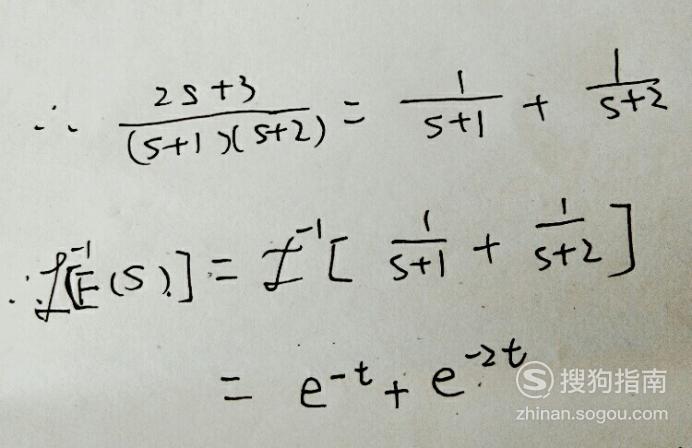 ∴ (2s+3)/((s+1)(s+2)) = 1/(s+1) + 1/(s+2)
∴ ℒ⁻¹[F(s)] = ℒ⁻¹[1/(s+1) + 1/(s+2)]
= e^(-t) + e^(-2t)
搜狗指南
zhinan.sogou.com